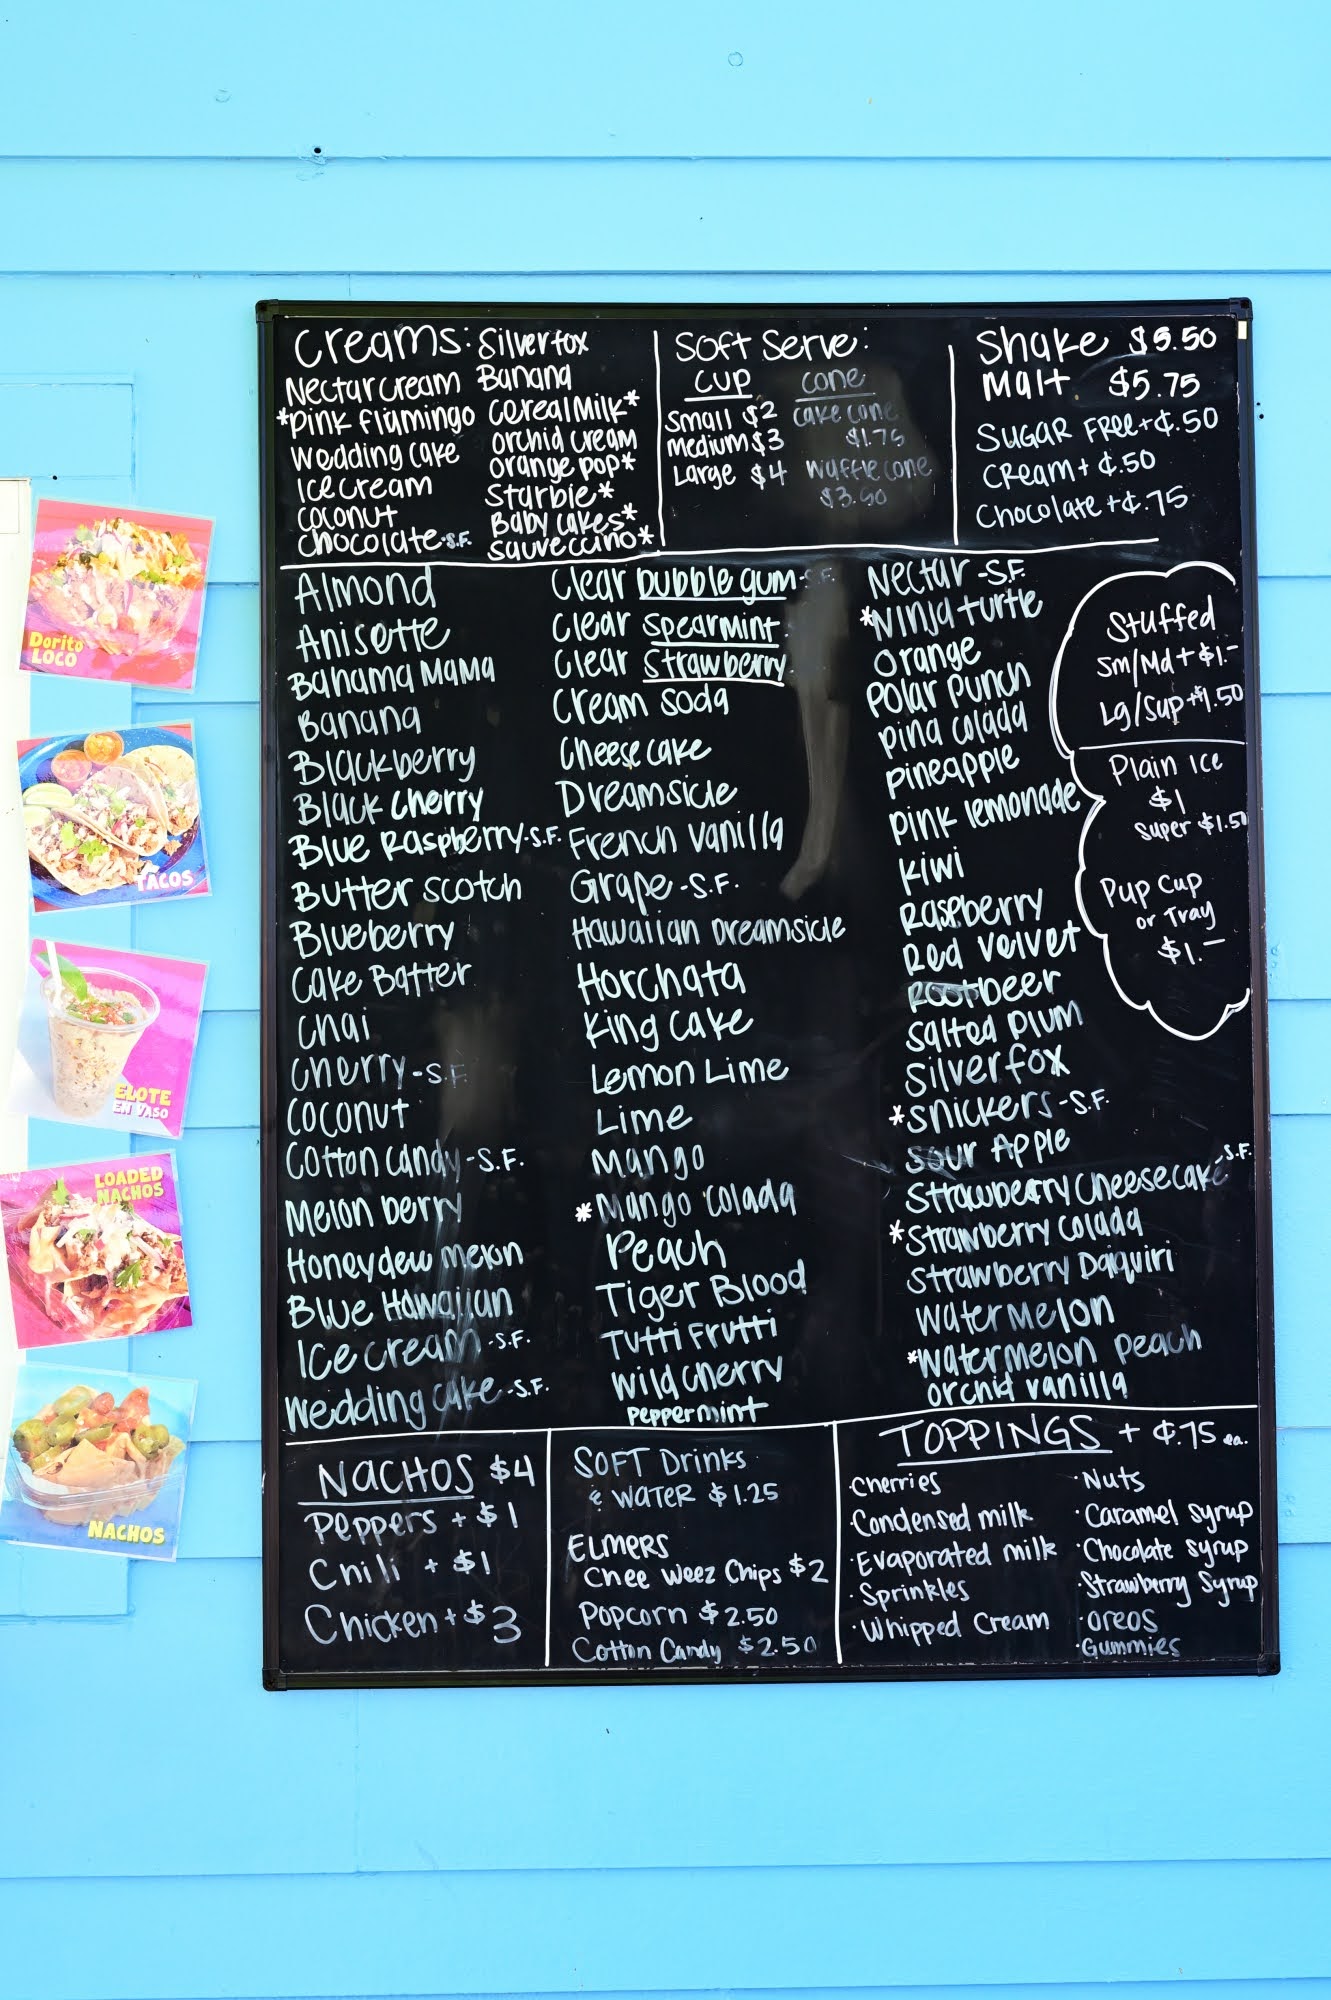 Creams:
Nectar cream
*Pink flamingo
Wedding cake
Ice cream
Coconut
Chocolate-S.F.
Silverfox
Banana
Cereal Milk*
Orchid cream
Orange pop*
Starbie*
Baby cakes*
Sauveccino*
Soft Serve:
Cup
Small $2
Medium $3
Large $4
Cone
Cake cone
$1.75
Waffle cone
$3.50
Shake $5.50
Malt $5.75
Sugar Free+¢.50
Cream+ ¢.50
Chocolate+¢.75
Almond
Anisette
Bahama Mama
Banana
Blackberry
Black Cherry
Blue Raspberry-S.F.
Butter scotch
Blueberry
Cake Batter
Chai
Cherry-S.F.
Coconut
Cotton Candy-S.F.
Melon berry
Honeydew melon
Blue Hawaiian
Ice cream-S.F.
Wedding cake-S.F.
Clear bubble gum-S.F.
Clear Spearmint
Clear Strawberry
Cream soda
Cheese cake
Dreamsicle
French Vanilla
Grape-S.F.
Hawaiian Dreamsicle
Horchata
King Cake
Lemon Lime
Lime
Mango
*Mango Colada
Peach
Tiger Blood
Tutti Frutti
Wild Cherry
Peppermint
Nectar-S.F.
*Ninja turtle
Orange
Polar Punch
Pina Colada
Pineapple
Pink lemonade
Kiwi
Raspberry
Red Velvet
Rootbeer
Salted Plum
Silverfox
*Snickers-S.F.
Sour Apple
Strawberry Cheesecake-S.F.
*Strawberry Colada
Strawberry Daiquiri
Watermelon
*Watermelon Peach
Orchid Vanilla
Stuffed
Sm/Md+$1.-
Lg/Sup+$1.50
Plain Ice
$1
Super $1.50
Pup Cup
or Tray
$1.-
NACHOS $4
Peppers + $1
Chili + $1
Chicken + $3
SOFT Drinks
& WATER $1.25
ELMERS
Chee Weez Chips $2
Popcorn $2.50
Cotton Candy $2.50
TOPPINGS + ¢.75 ea.
·Cherries
·Condensed milk
·Evaporated milk
·Sprinkles
·Whipped Cream
·Nuts
·Caramel syrup
·Chocolate syrup
·Strawberry Syrup
·Oreos
·Gummies
Dorito
LOCO
TACOS
ELOTE
EN VASO
LOADED
NACHOS
NACHOS